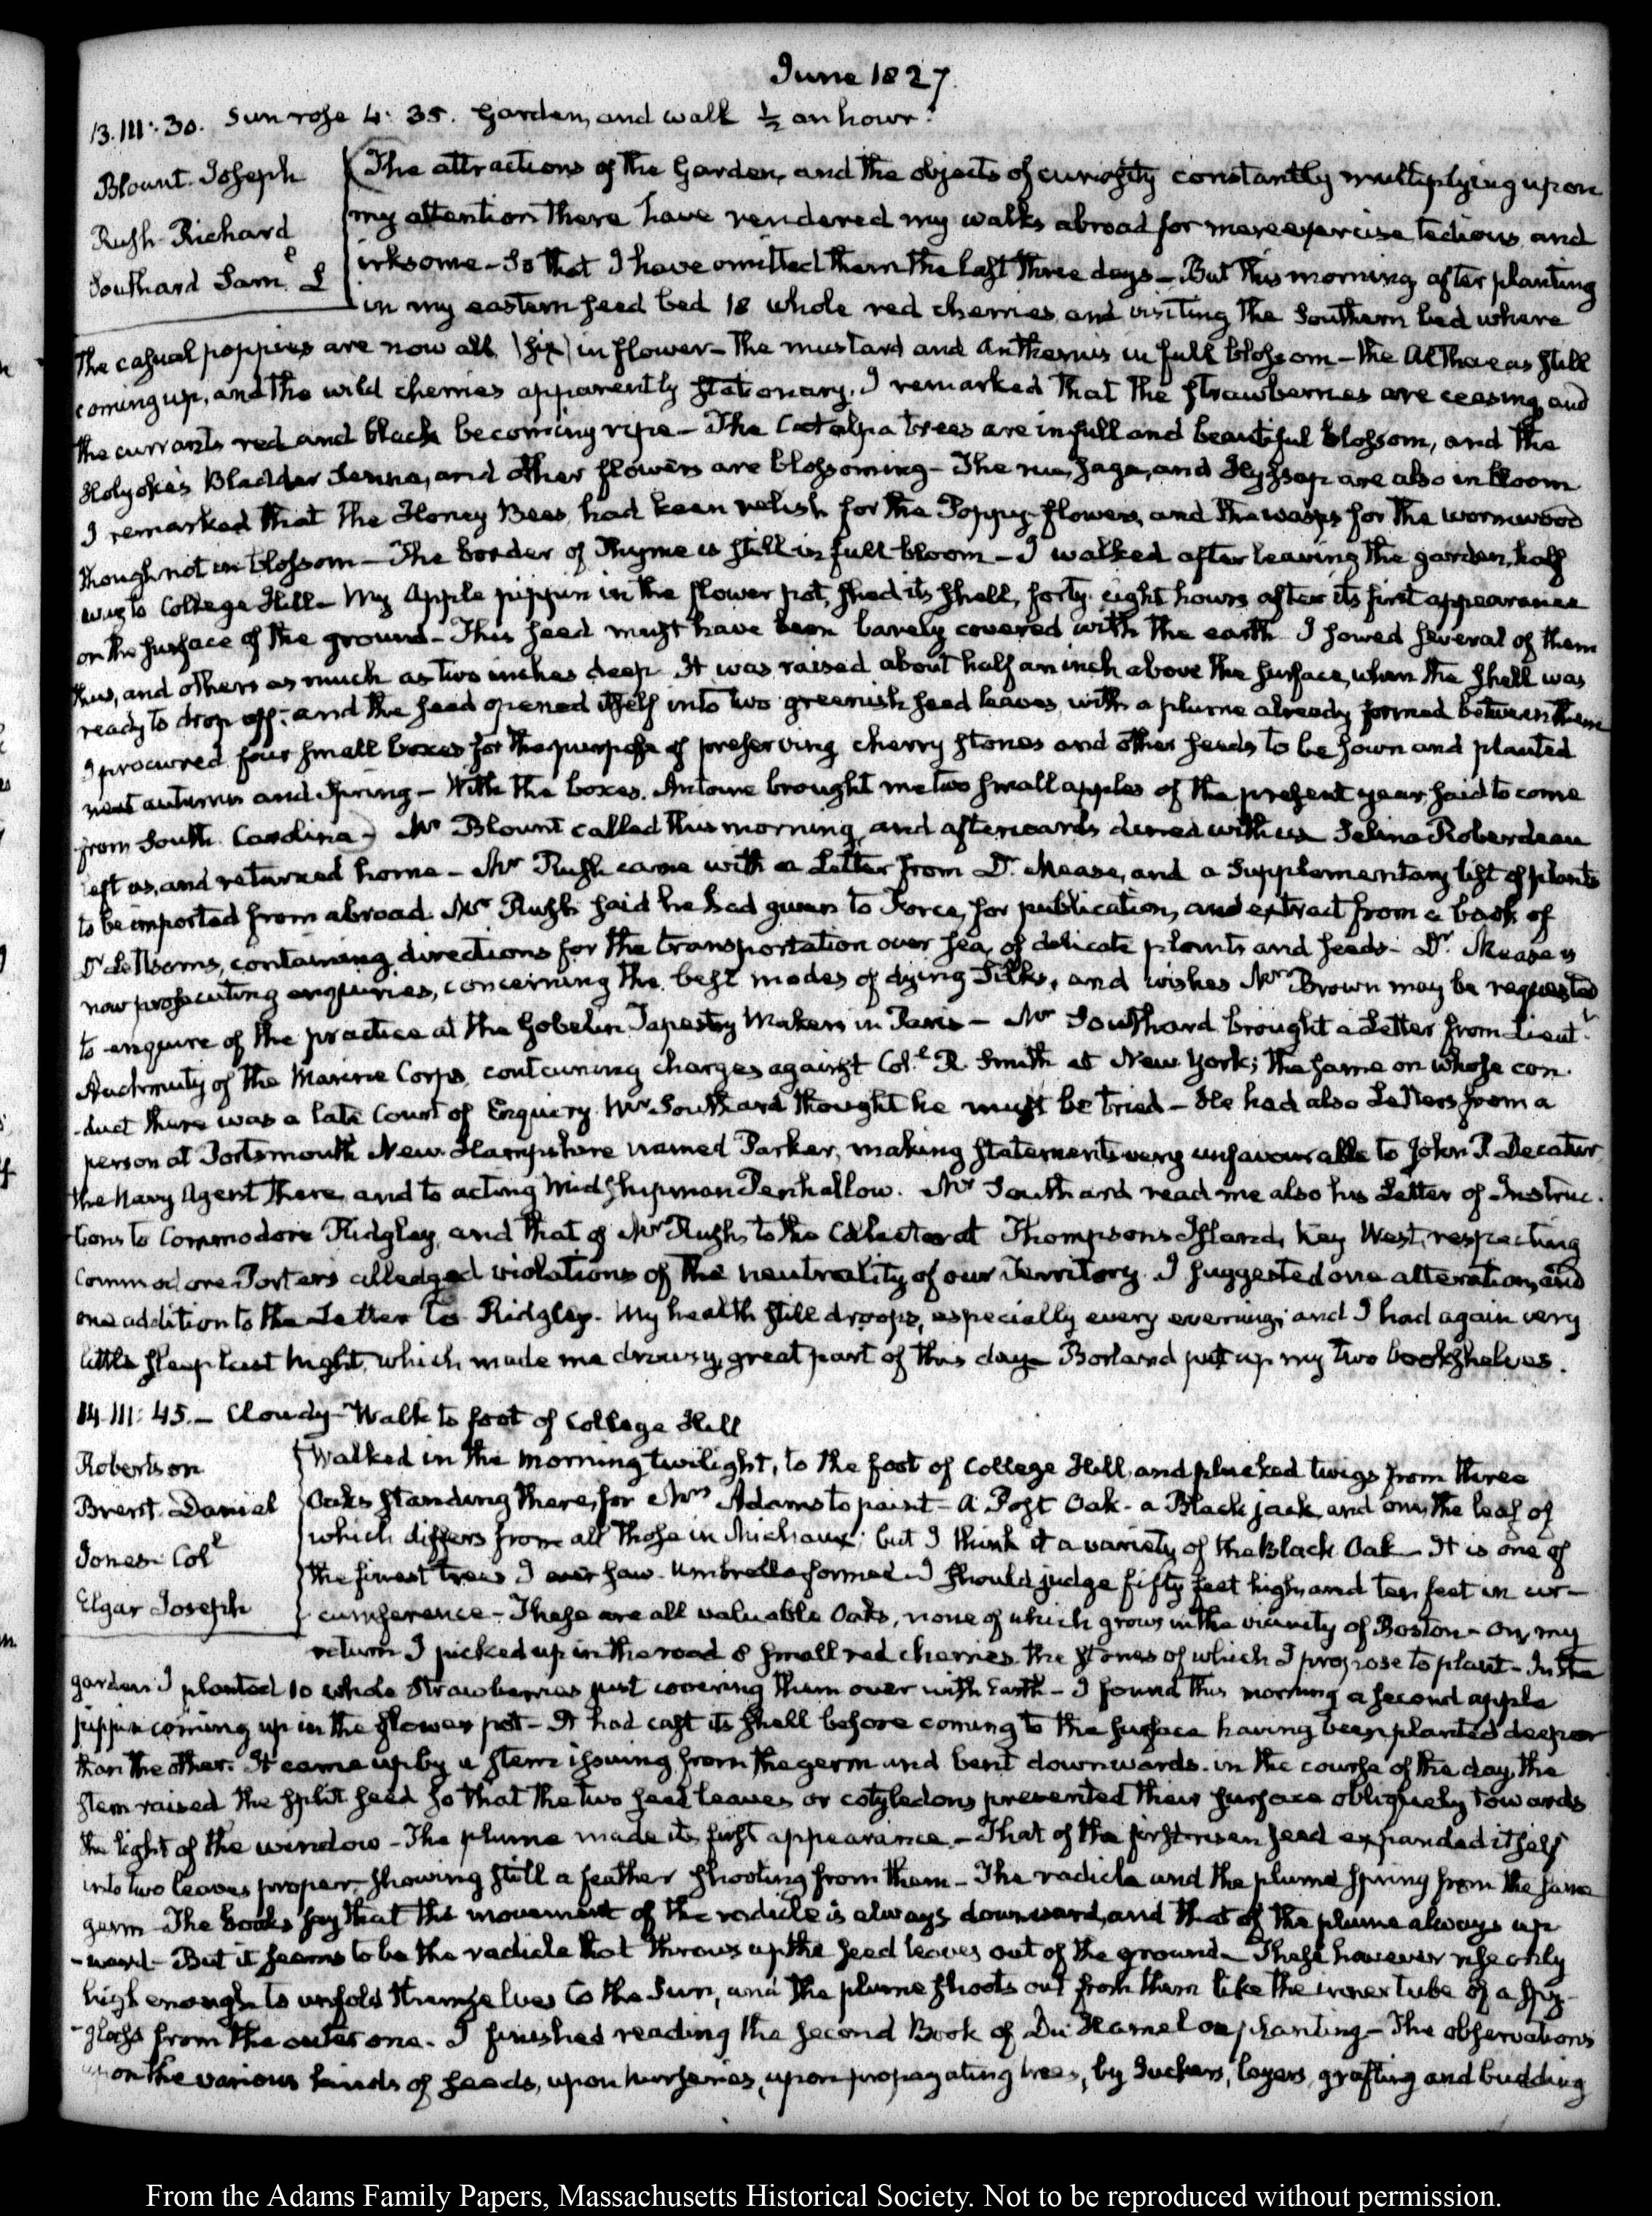 June 1827.
13. III: 30. Sun rose 4: 35. Garden, and walk ½ an hour.
Blount. Joseph
Rush Richard
Southard Saml. L
The attractions of the Garden, and the objects of curiosity constantly multiplying upon
my attention there have rendered my walks abroad for mere exercise tedious and
irksome — So that I have omitted them the last three days — But this morning after planting
in my eastern seed bed 18 whole red cherries and visiting the Southern bed where
the casual poppies are now all (six) in flower — the mustard and Anthemis in full blossom — the Altheas still
coming up, and the wild cherries apparently stationary. I remarked that the strawberries are ceasing and
the currants red and black becoming ripe — The Catalpa trees are in full and beautiful blossom, and the
Holyokes Bladder Senna, and other flowers are blossoming — The rue, sage, and Hyssop are also in bloom
I remarked that the Honey Bees had keen relish for the Poppy flowers, and the wasps for the wormwood
though not in blossom — The border of Thyme is still in full bloom — I walked after leaving the garden, half
way to College Hill — My Apple pippin in the flower pot, shed its shell, forty eight hours after its first appearance
on the surface of the ground — This seed must have been barely covered with the earth. I sowed several of them
thus, and others as much as two inches deep. It was raised about half an inch above the surface, when the shell was
ready to drop off; and the seed opened itself into two greenish seed leaves, with a plume already formed between them
I procured four small boxes for the purpose of preserving cherry stones and other seeds to be sown and planted
next autumn and Spring — With the boxes. Antoine brought me two small apples of the present year, said to come
from South Carolina) Mr Blount called this morning, and afterwards dined with us Selina Roberdeau
left us, and returned home — Mr Rush came with a Letter from Dr. Mease, and a Supplementary list of plants
to be imported from abroad. Mr Rush said he had given to Force, for publication, and extract from a book of
Dr Lettsoms, containing directions for the transportation over sea, of delicate plants and seeds — Dr. Mease is
now prosecuting enquiries, concerning the best modes of dying Silks, and wishes Mr Brown may be requested
to enquire of the practice at the Gobelin Tapestry Makers in Paris — Mr Southard brought a Letter from Lieutt.
Auchmuty of the Marine Corps, containing charges against Coll. R. Smith at New York; the same on whose con-
-duct there was a late Court of Enquiry. Mr Southard thought he must be tried — He had also Letters from a
person at Portsmouth New-Hampshire named Parker, making statements very unfavourable to John P. Decatur
the Navy Agent there, and to acting Midshipman Penhallow. Mr Southard read me also his Letter of Instruc-
tions to Commodore Ridgley, and that of Mr Rush, to the Collector at Thompsons Island, Key West, respecting
Commodore Porters alledged violations of the neutrality of our Territory. I suggested one alteration, and
one addition to the Letter to Ridgley. My health still droops, especially every evening; and I had again very
little sleep last Night, which made me drowsy, great part of this day — Borland put up my two bookshelves.
14. III: 45. — Cloudy — Walk to foot of College Hill
Robertson
Brent Daniel
Jones Coll
Elgar Joseph
Walked in the morning twilight, to the foot of College Hill, and plucked twigs from three
Oaks standing there, for Mrs Adams to paint — A Post Oak — a Black jack, and one the leaf of
which differs from all those in Michaux; but I think it a variety of the Black Oak — It is one of
the finest trees I ever saw. Umbrella formed — I should judge fifty feet high and ten feet in cir-
-cumference — These are all valuable Oaks, none of which grows in the vicinity of Boston — On my
return I picked up in the road 8 small red cherries the stones of which I propose to plant — In the
garden I planted 10 whole Strawberries just covering them over with Earth — I found this morning a second apple
pippin coming up in the flower pot — It had cast its shell before coming to the surface having been planted deeper
than the other. It came up by a stem issuing from the germ and bent downwards. in the course of the day, the
stem raised the split seed so that the two seed leaves or cotyledons presented their surface obliquely towards
the light of the window — The plume made its first appearance — That of the first risen seed expanded itself
into two leaves proper, showing still a feather shooting from them — The radicle and the plume spring from the same
germ — The books say that the movement of the radicle is always downward, and that of the plume always up-
-ward — But it seems to be the radicle that throws up the seed leaves out of the ground — These however rise only
high enough to unfold themselves to the Sun, and the plume shoots out from them like the inner tube of a spy-
-glass from the outer one. I finished reading the second Book of Du Hamel on planting — The observations
upon the various kinds of seeds, upon nurseries, upon propagating trees, by Suckers, layers, grafting and budding
From the Adams Family Papers, Massachusetts Historical Society. Not to be reproduced without permission.